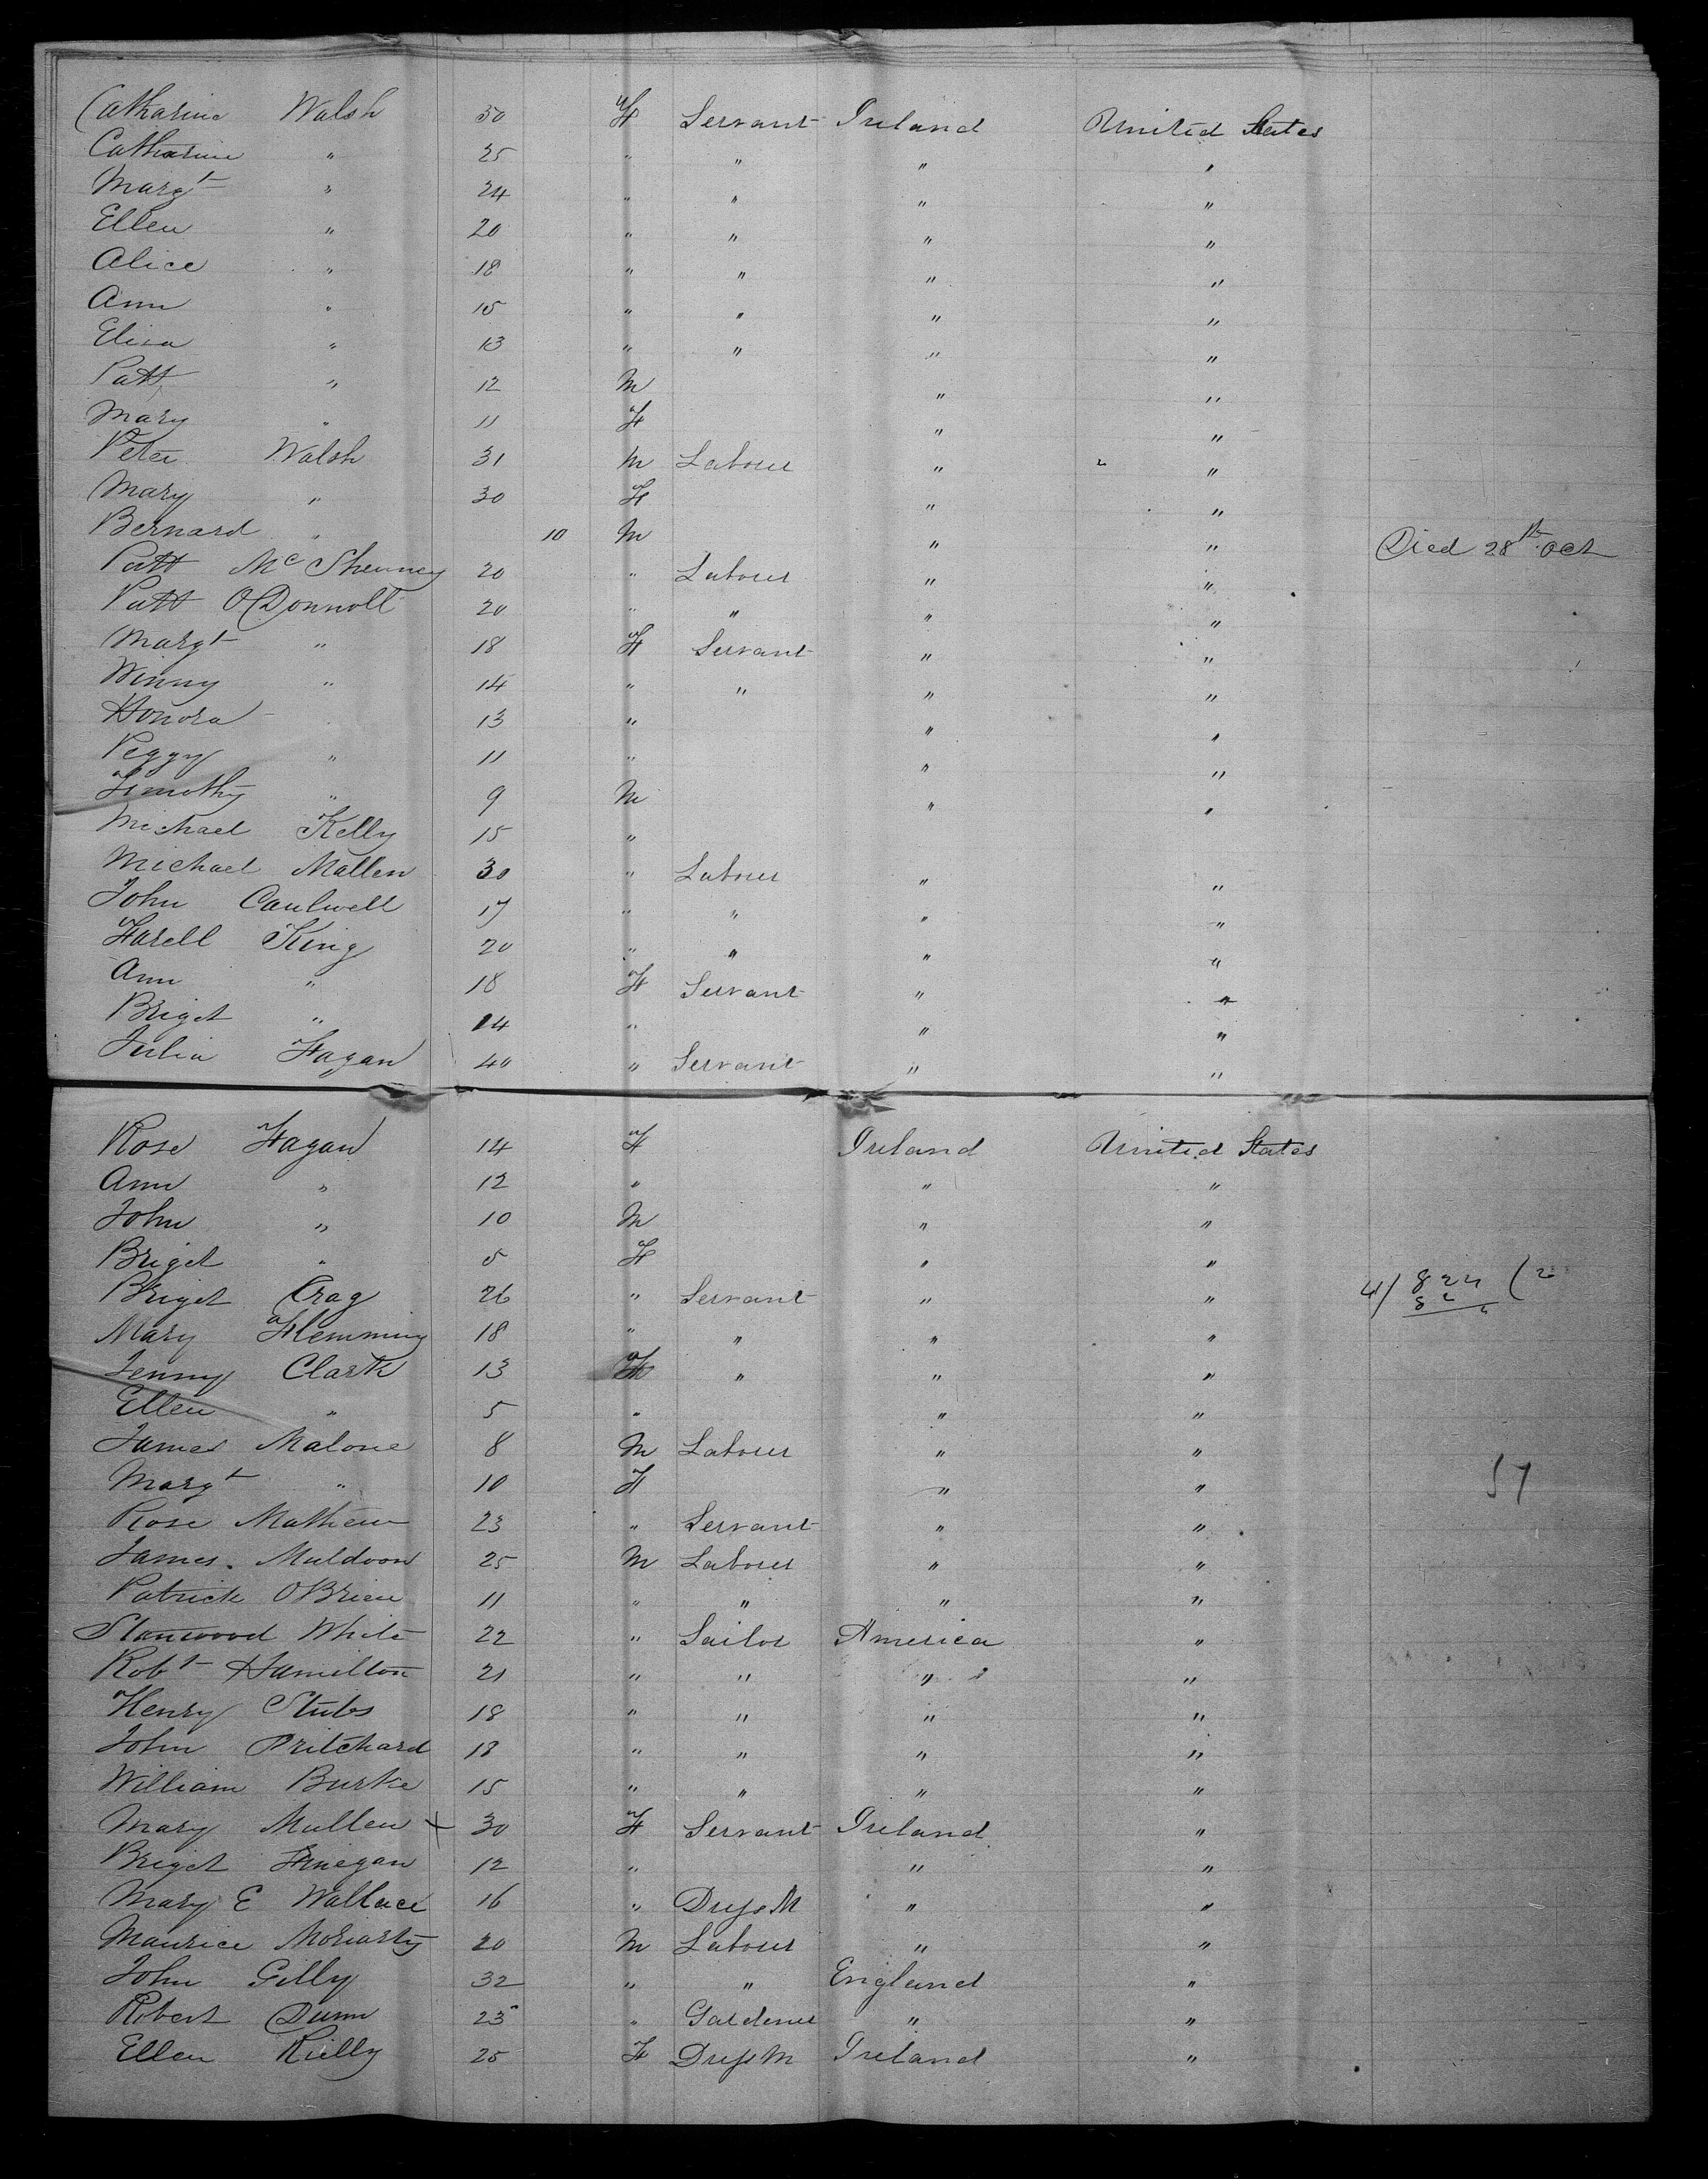 Catharine Walsh 50 F Servant Ireland United States
Catharine " 25 " " " "
Margt " 24 " " " "
Ellen " 20 " " " "
Alice " 18 " " " "
Ann " 15 " " " "
Eliza " 13 " " " "
Patt " 12 M " "
Mary " 11 F " "
Peter Walsh 31 M Laborer " "
Mary " 30 F " "
Bernard " 10 M " " Died 28th Oct
Patt 20 " Laborer " "
Patt O'Donnoll 20 " " " "
Margt " 18 F Servant " "
Winny " 14 " " " "
Honora 13 " " "
Peggy " 11 " " "
Timothy " 9 M " "
Michael Kelly 15 "
Michael Mallen 30 " Laborer " "
John Caulwell 17 " " " "
Farell King 20 " " " "
Ann " 18 F Servant " "
Briget " 14 " " "
Julia Fagan 40 " Servant " "
Rose Fagan 14 F Ireland United States
Ann " 12 " " "
John " 10 M " "
Briget " 5 F " "
Briget Crag 26 " Servant " "
Mary Flemming 18 " " " "
Jenny Clark 13 F " " "
Ellen " 5 " " "
James Malone 8 M Laborer " "
Margt " 10 F " "
Rose Mathew 23 " Servant " "
James Muldoon 25 M Laborer " "
Patrick OBrien 11 " " " "
Stanwood White 22 " Sailor America "
Robt Hamilton 21 " " " "
Henry Stubs 18 " " " "
John Pritchard 18 " " " "
William Burke 15 " " " "
Mary Mullen x 30 F Servant Ireland "
Briget Finegan 12 " " "
Mary E Wallace 16 " Dress M " "
Maurice Moriarty 20 M Laborer " "
John Gilly 32 " " England "
Robert Dunn 23 " Gardener " "
Ellen Rielly 25 F Dress M Ireland "